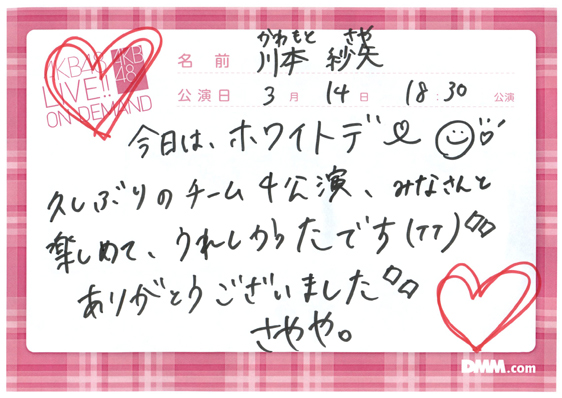 かわもと さや
名前 川本 紗矢
AKB48 AKB48
LIVE!!
ON DEMAND
公演日 3月 14日 18:30 公演
今日は、ホワイトデー
久しぶりのチーム4公演、みなさんと
楽しめて、うれしかったです(TT)
ありがとうございました
さやや。
DMM.com